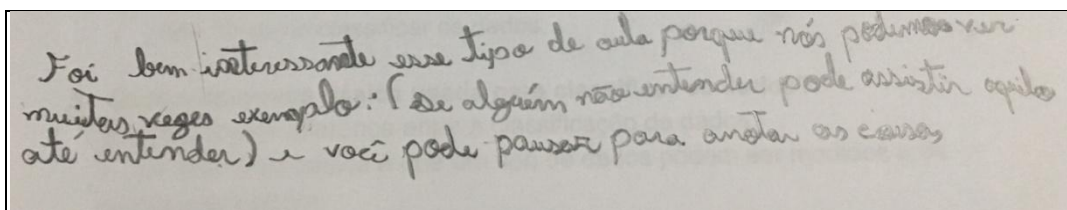 Foi bem interessante esse tipo de aula porque nós podemos ver
muitas vezes exemplo: (se alguém não entender pode assistir aquilo
até entender) e você pode pausar para anotar as coisas,